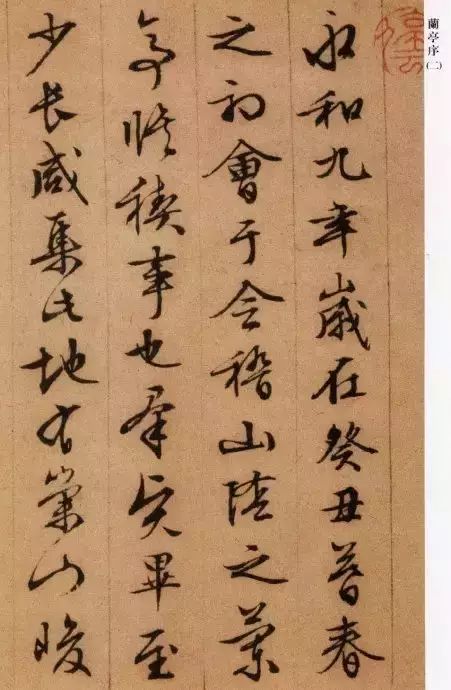 蘭亭序(二)
永和九年歲在癸丑暮春
之初會于会稽山陰之蘭
亭脩禊事也羣賢畢至
少長咸集此地有崇山峻